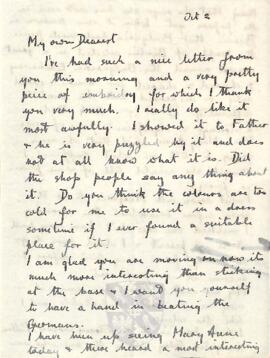 Oct 2
My own Dearest
I've had such a nice letter from
you this morning and a very pretty
peice of embroidry for which I thank
you very much. I really do like it
most awfully. I showed it to Father
& he is very puzzled by it and does
not at all know what it is. Did
the shop people say any thing about
it. Do you think the colours are too
cold for me to use it in a dress
sometime if I ever found a suitable
place for it.
I am glad you are moving on now it is
much more interesting than sticking
at the base & I want you yourself
to have a hand in beating the
Germans.
I have been up seeing Mary Anne
today & there heard a most interesting